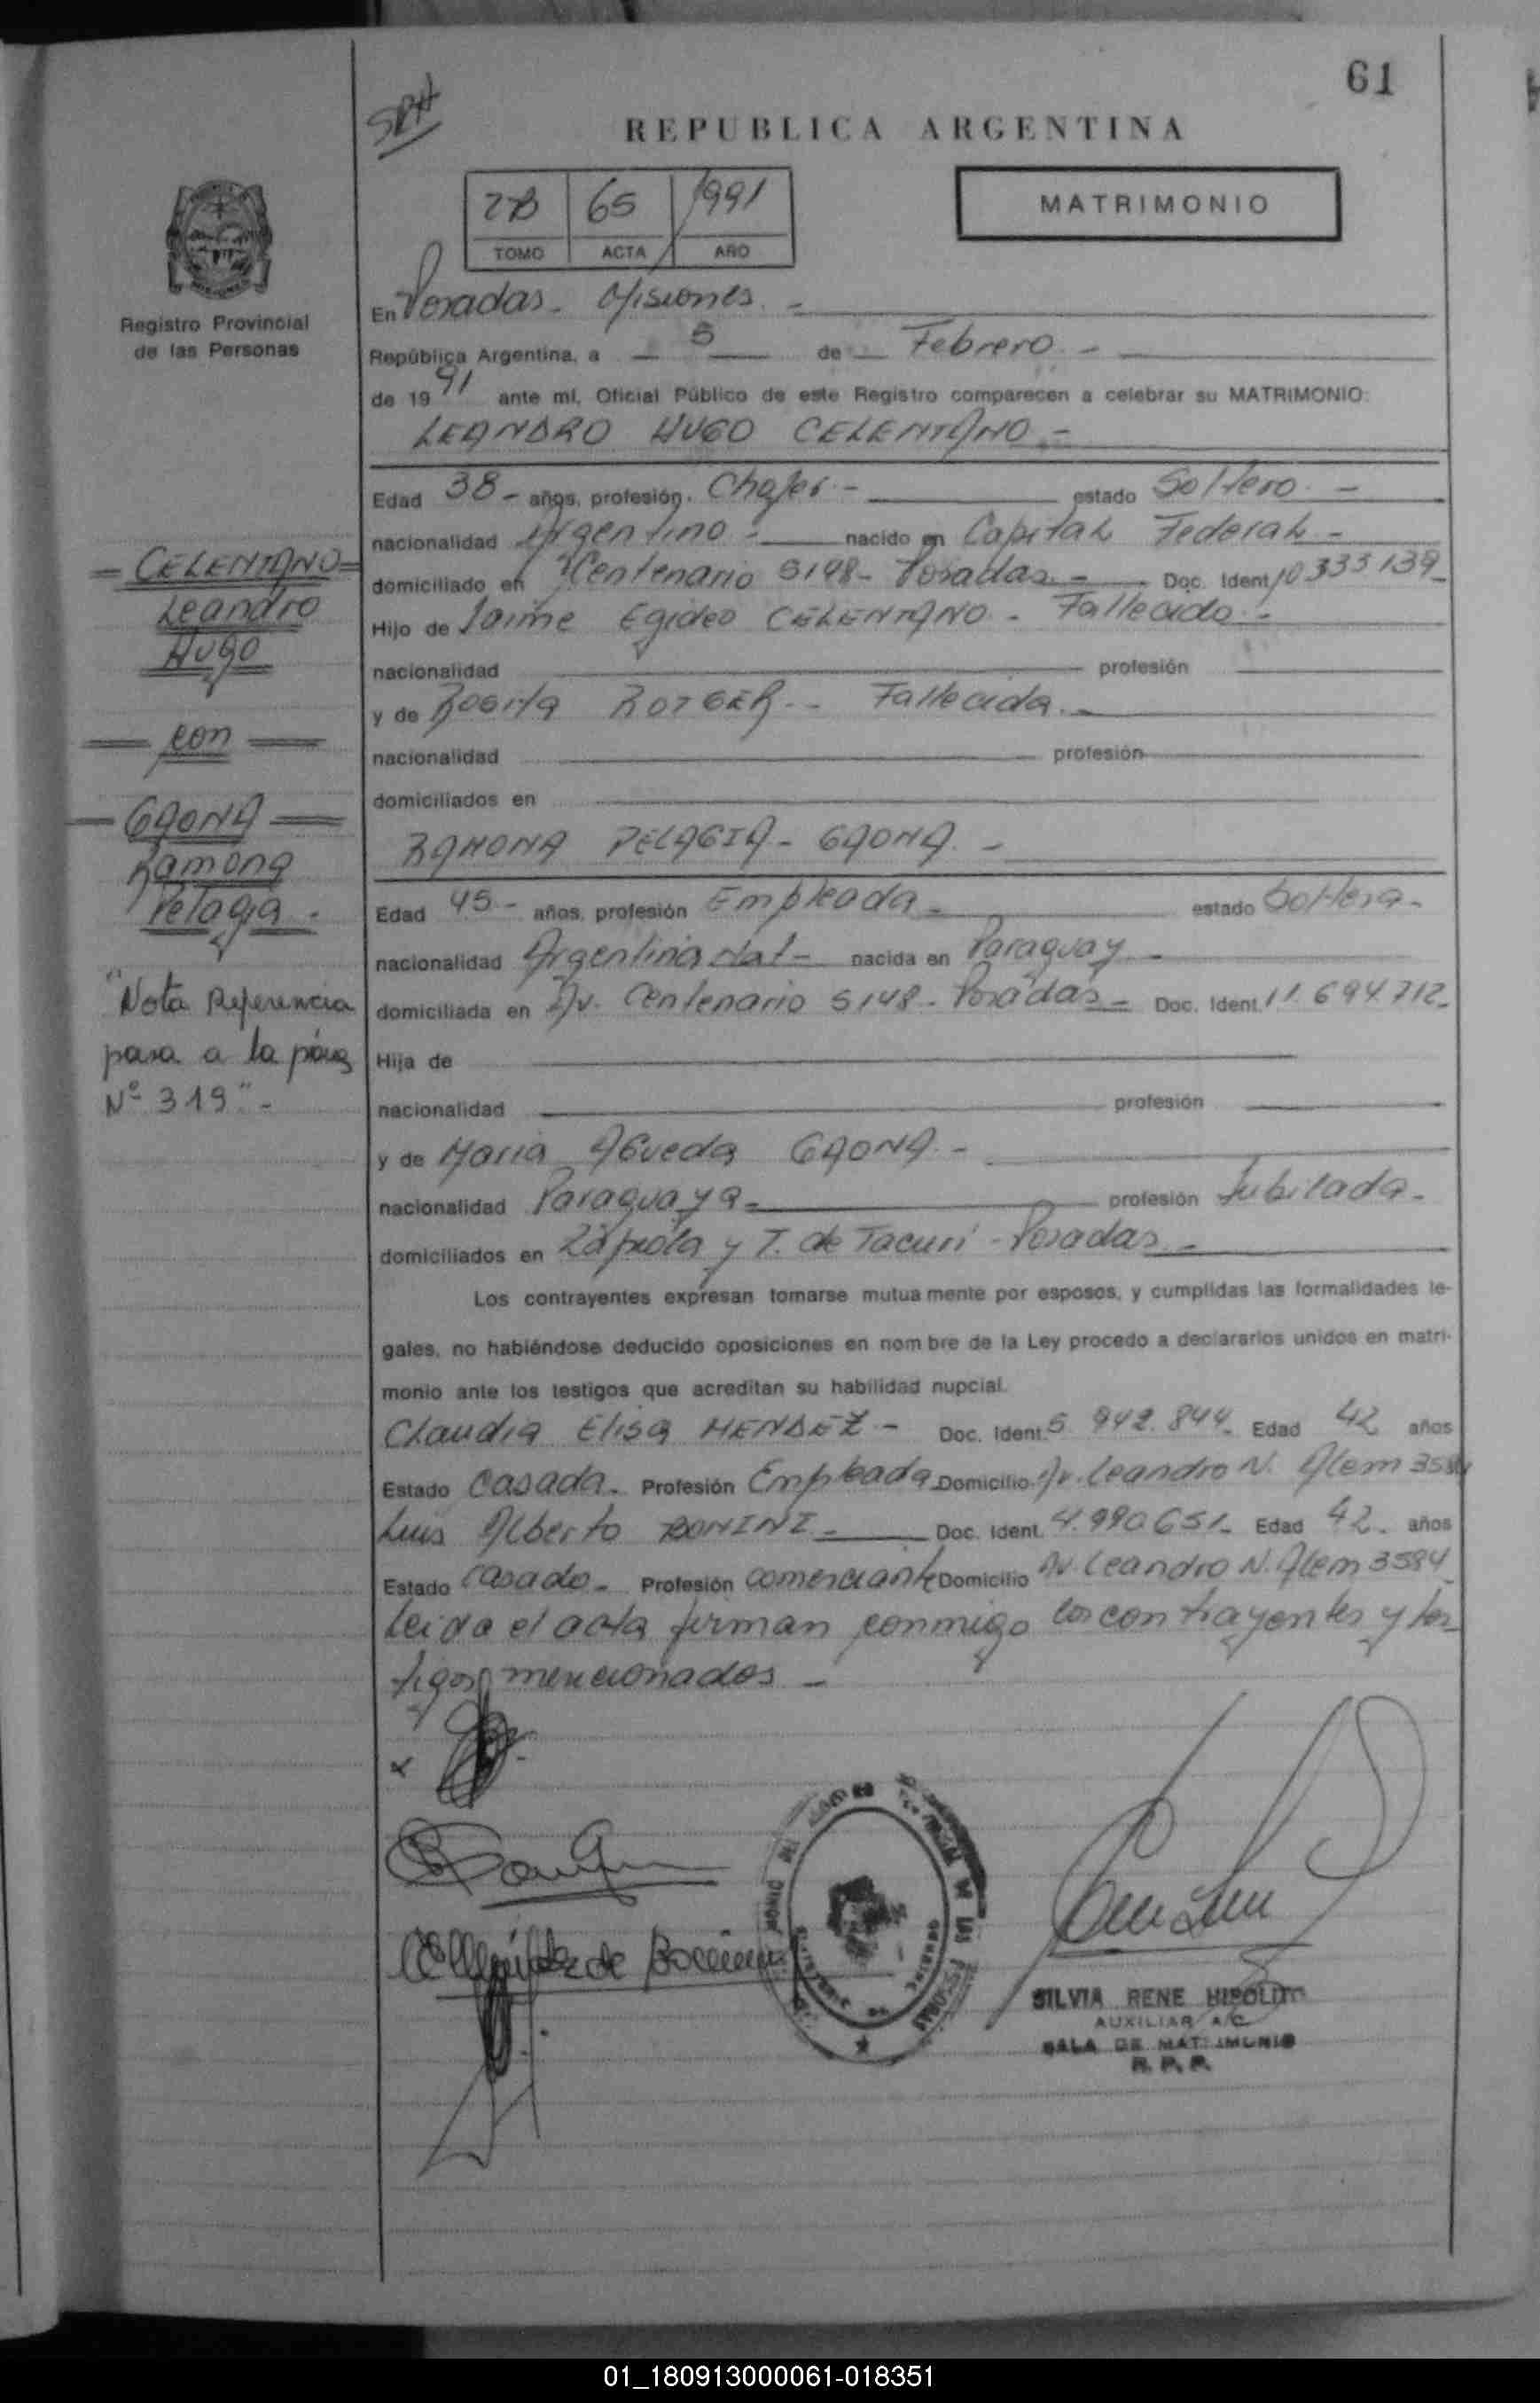 61
SRH
REPUBLICA ARGENTINA
2B 65 1991
TOMO ACTA AÑO
MATRIMONIO
Registro Provincial
de las Personas
En Posadas - Misiones. -
República Argentina, a — 5 — de — Febrero. -
de 1991 ante mí, Oficial Público de este Registro comparecen a celebrar su MATRIMONIO:
LEANDRO HUGO CELENTANO. -
Edad 38 - años, profesión. Chofer. - estado Soltero. -
nacionalidad Argentino - nacido en Capital Federal -
domiciliado en Centenario 5148 - Posadas - Doc. Ident 10 333 139 -
Hijo de Jaime Egideo CELENTANO - Fallecido. -
nacionalidad profesión
y de Rosita ROTGER. - Fallecida. -
nacionalidad profesión
domiciliados en
RAMONA PELAGIA - GAONA. -
Edad 45 - años, profesión Empleada - estado Soltera -
nacionalidad Argentina Nat - nacida en Paraguay. -
domiciliada en Av. Centenario 5148 - Posadas - Doc. Ident. 11.694.712 -
Hija de
nacionalidad profesión
y de Maria Agueda GAONA. -
nacionalidad Paraguaya - profesión Jubilada -
domiciliados en Zapiola y T. de Tacuri - Posadas. -
Los contrayentes expresan tomarse mutua mente por esposos, y cumplidas las formalidades le-
gales, no habiéndose deducido oposiciones en nom bre de la Ley procedo a declararlos unidos en matri-
monio ante los testigos que acreditan su habilidad nupcial.
Claudia Elisa MENDEZ - Doc. Ident. 5.942.844 - Edad 42 años
Estado Casada - Profesión Empleada Domicilio Av. Leandro N. Alem 3584
Luis Alberto BONINI - Doc. Ident. 4.990.651 - Edad 42 - años
Estado Casado - Profesión comerciante Domicilio Av. Leandro N. Alem 3584
Leida el acta firman conmigo los contrayentes y tes
tigos mencionados. -
= CELENTANO =
Leandro
Hugo
= con =
= GAONA =
Ramona
Pelagia -
"Nota Referencia
pasa a la pág
Nº 319" -
SILVIA RENE HIPOLITO
AUXILIAR A/C
SALA DE MATRIMONIO
R. P. P.
01_180913000061-018351